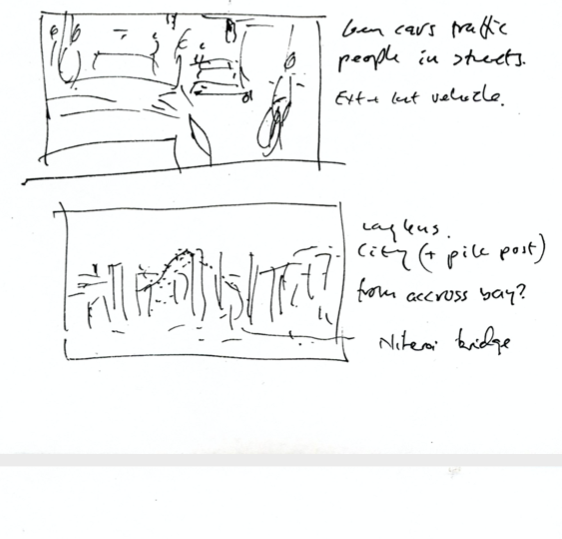 cars traffic
people in streets.
Ext + int vehicle.
City (+ pile post)
from accross bay?
Niteroi bridge